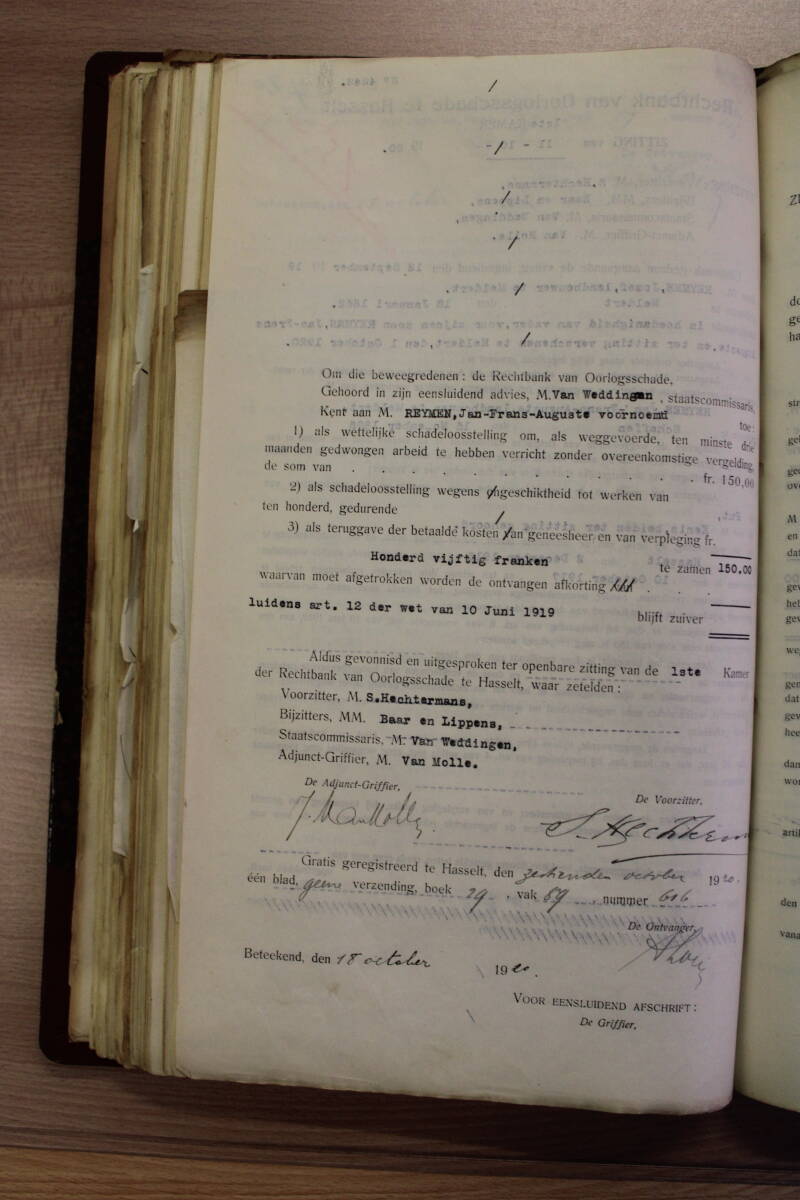 Om die beweegredenen: de Rechtbank van Oorlogsschade,
Gehoord in zijn eensluidend advies, M. Van Weddingen , staatscommissaris,
Kent aan M. REYMEN,Jan-Frans-Auguste voornoemd toe:
1) als wettelijke schadeloosstelling om, als weggevoerde, ten minste drie
maanden gedwongen arbeid te hebben verricht zonder overeenkomstige vergelding,
de som van . . . . . . . . . . . . fr. 150,00
2) als schadeloosstelling wegens ongeschiktheid tot werken van
ten honderd, gedurende /
3) als teruggave der betaalde kosten van geneesheer en van verpleging fr.
Honderd vijftig franken te zamen 150.00
waarvan moet afgetrokken worden de ontvangen afkorting . . .
luidens art. 12 der wet van 10 Juni 1919 blijft zuiver
Aldus gevonnisd en uitgesproken ter openbare zitting van de 1ste Kamer
der Rechtbank van Oorlogsschade te Hasselt, waar zetelden:
Voorzitter, M. S.Hechtermans,
Bijzitters, MM. Baar en Lippens,
Staatscommissaris, M. Van Weddingen,
Adjunct-Griffier, M. Van Molle.
De Adjunct-Griffier, De Voorzitter,
J. Van Molle S. Hechterm
Gratis geregistreerd te Hasselt, den zestienden october 1920.
één blad, geene verzending, boek 29 , vak 89 , nummer 616
De Ontvanger,
Beteekend, den 18 october 1920.
VOOR EENSLUIDEND AFSCHRIFT:
De Griffier,